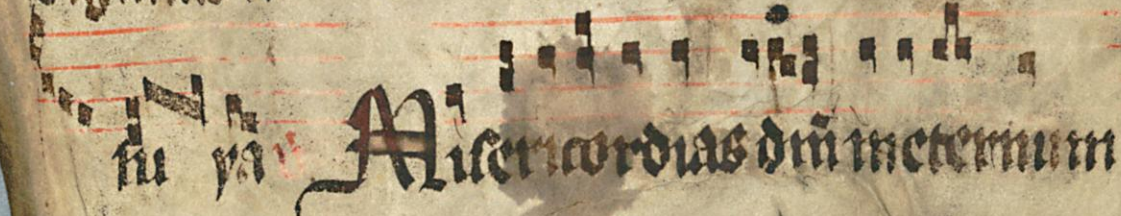 su pa Misericordias dm̄ ineternum